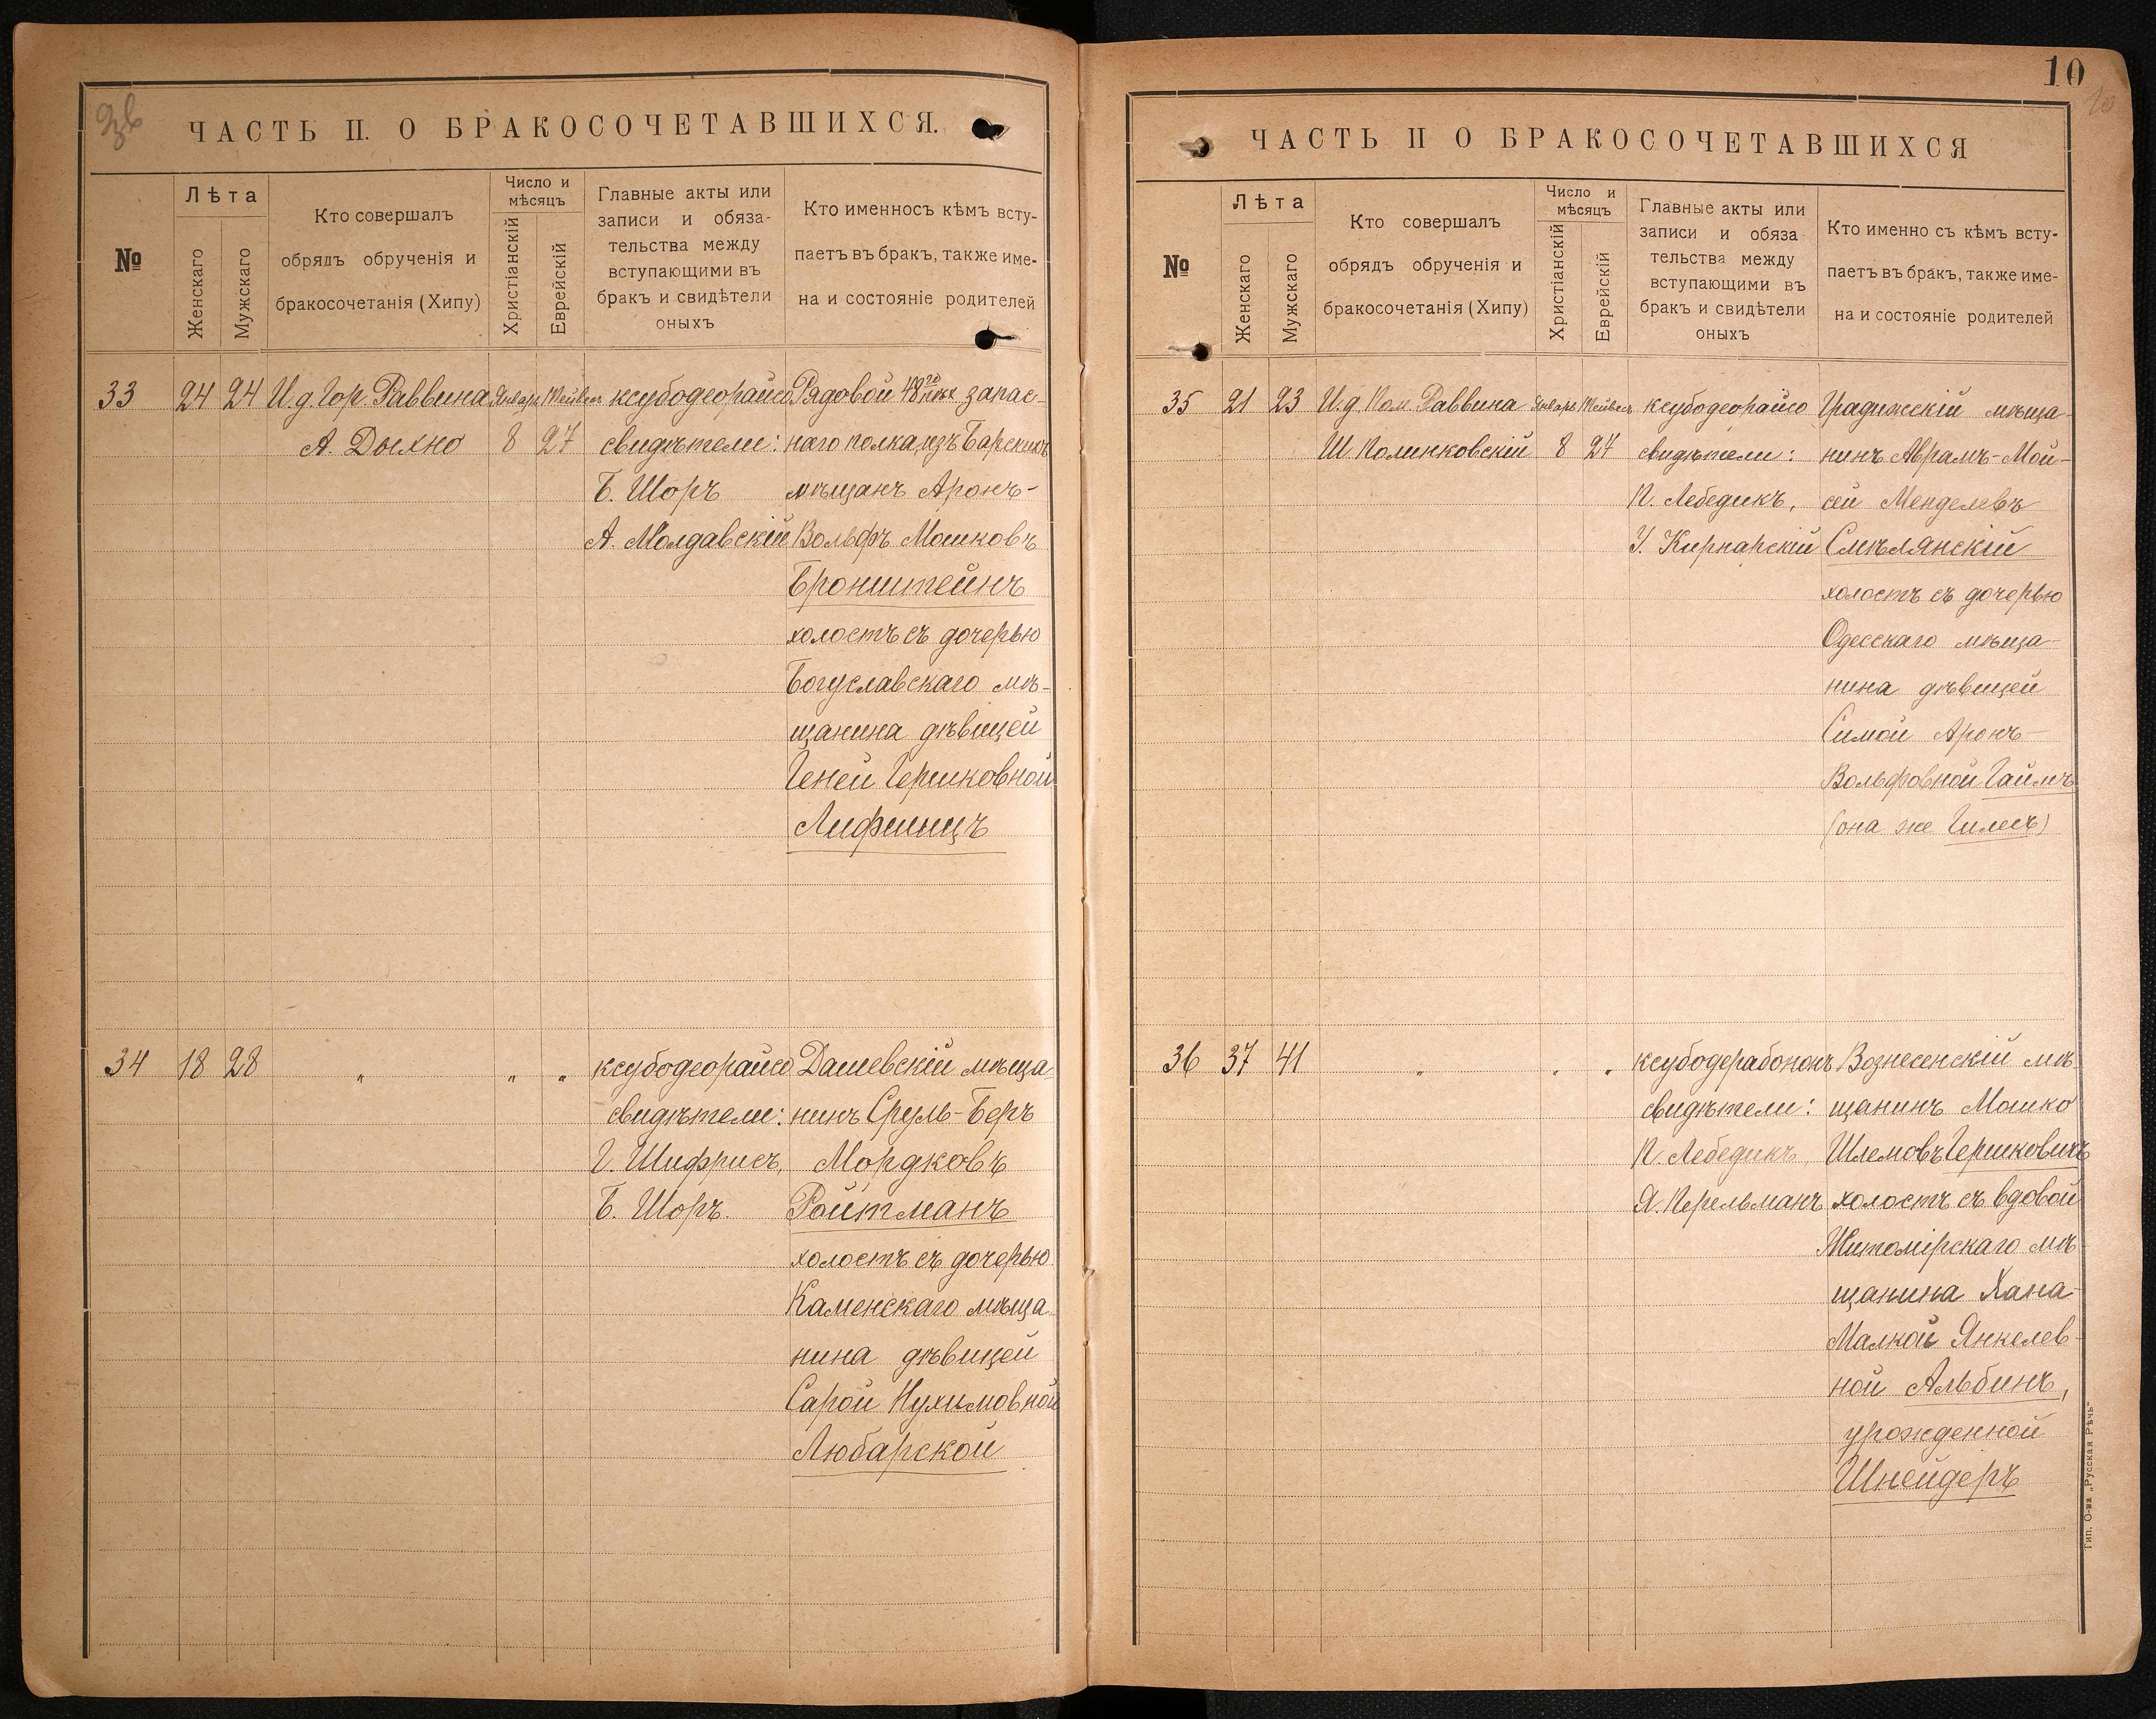 ЧАСТЬ II. О БРАКОСОЧЕТАВШИХСЯ.
№
Лѣта
Женскаго
Мужскаго
Кто совершалъ
обрядъ обрученія и
бракосочетанія (Хипу)
Число и
мѣсяцъ
Христіанскій
Еврейскій
Главные акты или
записи и обяза-
тельства между
вступающими въ
бракъ и свидѣтели
оныхъ
Кто именносъ кѣмъ всту-
паетъ въ бракъ, также име-
на и состояніе родителей
33
24
24
И.д. Гор. Раввина
А. Дыхно
Января
8
Тейвеса
27
ксубодеорайсо
свидѣтели:
Б. Шоръ
А. Молдавскій
Рядовой 48 запас-
наго полка, изъ Барскихъ
мѣщанъ Аронъ-
Вольфъ Мошковъ
Бронштейнъ
холостъ съ дочерью
Богуславскаго мѣ-
щанина дѣвицей
Геней Гершковной
Лифшицъ
34
18
28
"
"
"
ксубодеорайсо
свидѣтели:
Г. Шифрисъ,
Б. Шоръ.
Дашевскій мѣща-
нинъ Сруль-Беръ
Мордковъ
Ройтманъ
холостъ съ дочерью
Каменскаго мѣща-
нина дѣвицей
Сарой Нухимовной
Любарской
10
10
ЧАСТЬ II О БРАКОСОЧЕТАВШИХСЯ
№
Лѣта
Женскаго
Мужскаго
Кто совершалъ
обрядъ обрученія и
бракосочетанія (Хипу)
Число и
мѣсяцъ
Христіанскій
Еврейскій
Главные акты или
записи и обяза
тельства между
вступающими въ
бракъ и свидѣтели
оныхъ
Кто именно съ кѣмъ всту-
паетъ въ бракъ, также име-
на и состояніе родителей
35
21
23
И.д. Пом. Раввина
Ш. Полинковскій
Января
8
Тейвеса
27
ксубодеорайсо
свидѣтели:
П. Лебедикъ,
У. Кирнарскій
Градижскій мѣща-
нинъ Абрамъ-Мой-
сей Менделевъ
Смѣлянскій
холостъ съ дочерью
Одесскаго мѣща-
нина дѣвицей
Симой Аронъ-
Вольфовной Гаймъ
(она же Гилесъ)
36
37
41
"
"
"
ксубодерабононъ
свидѣтели:
П. Лебедикъ,
Я. Перельманъ
Вознесенскій мѣ-
щанинъ Мошко
Шлемовъ Гершковичъ
холостъ съ вдовой
Житомірскаго мѣ-
щанина Хана-
Малкой Янкелев-
ной Альбинъ,
урожденной
Шнейдеръ
Тип. О-ва „Русская Рѣчь"